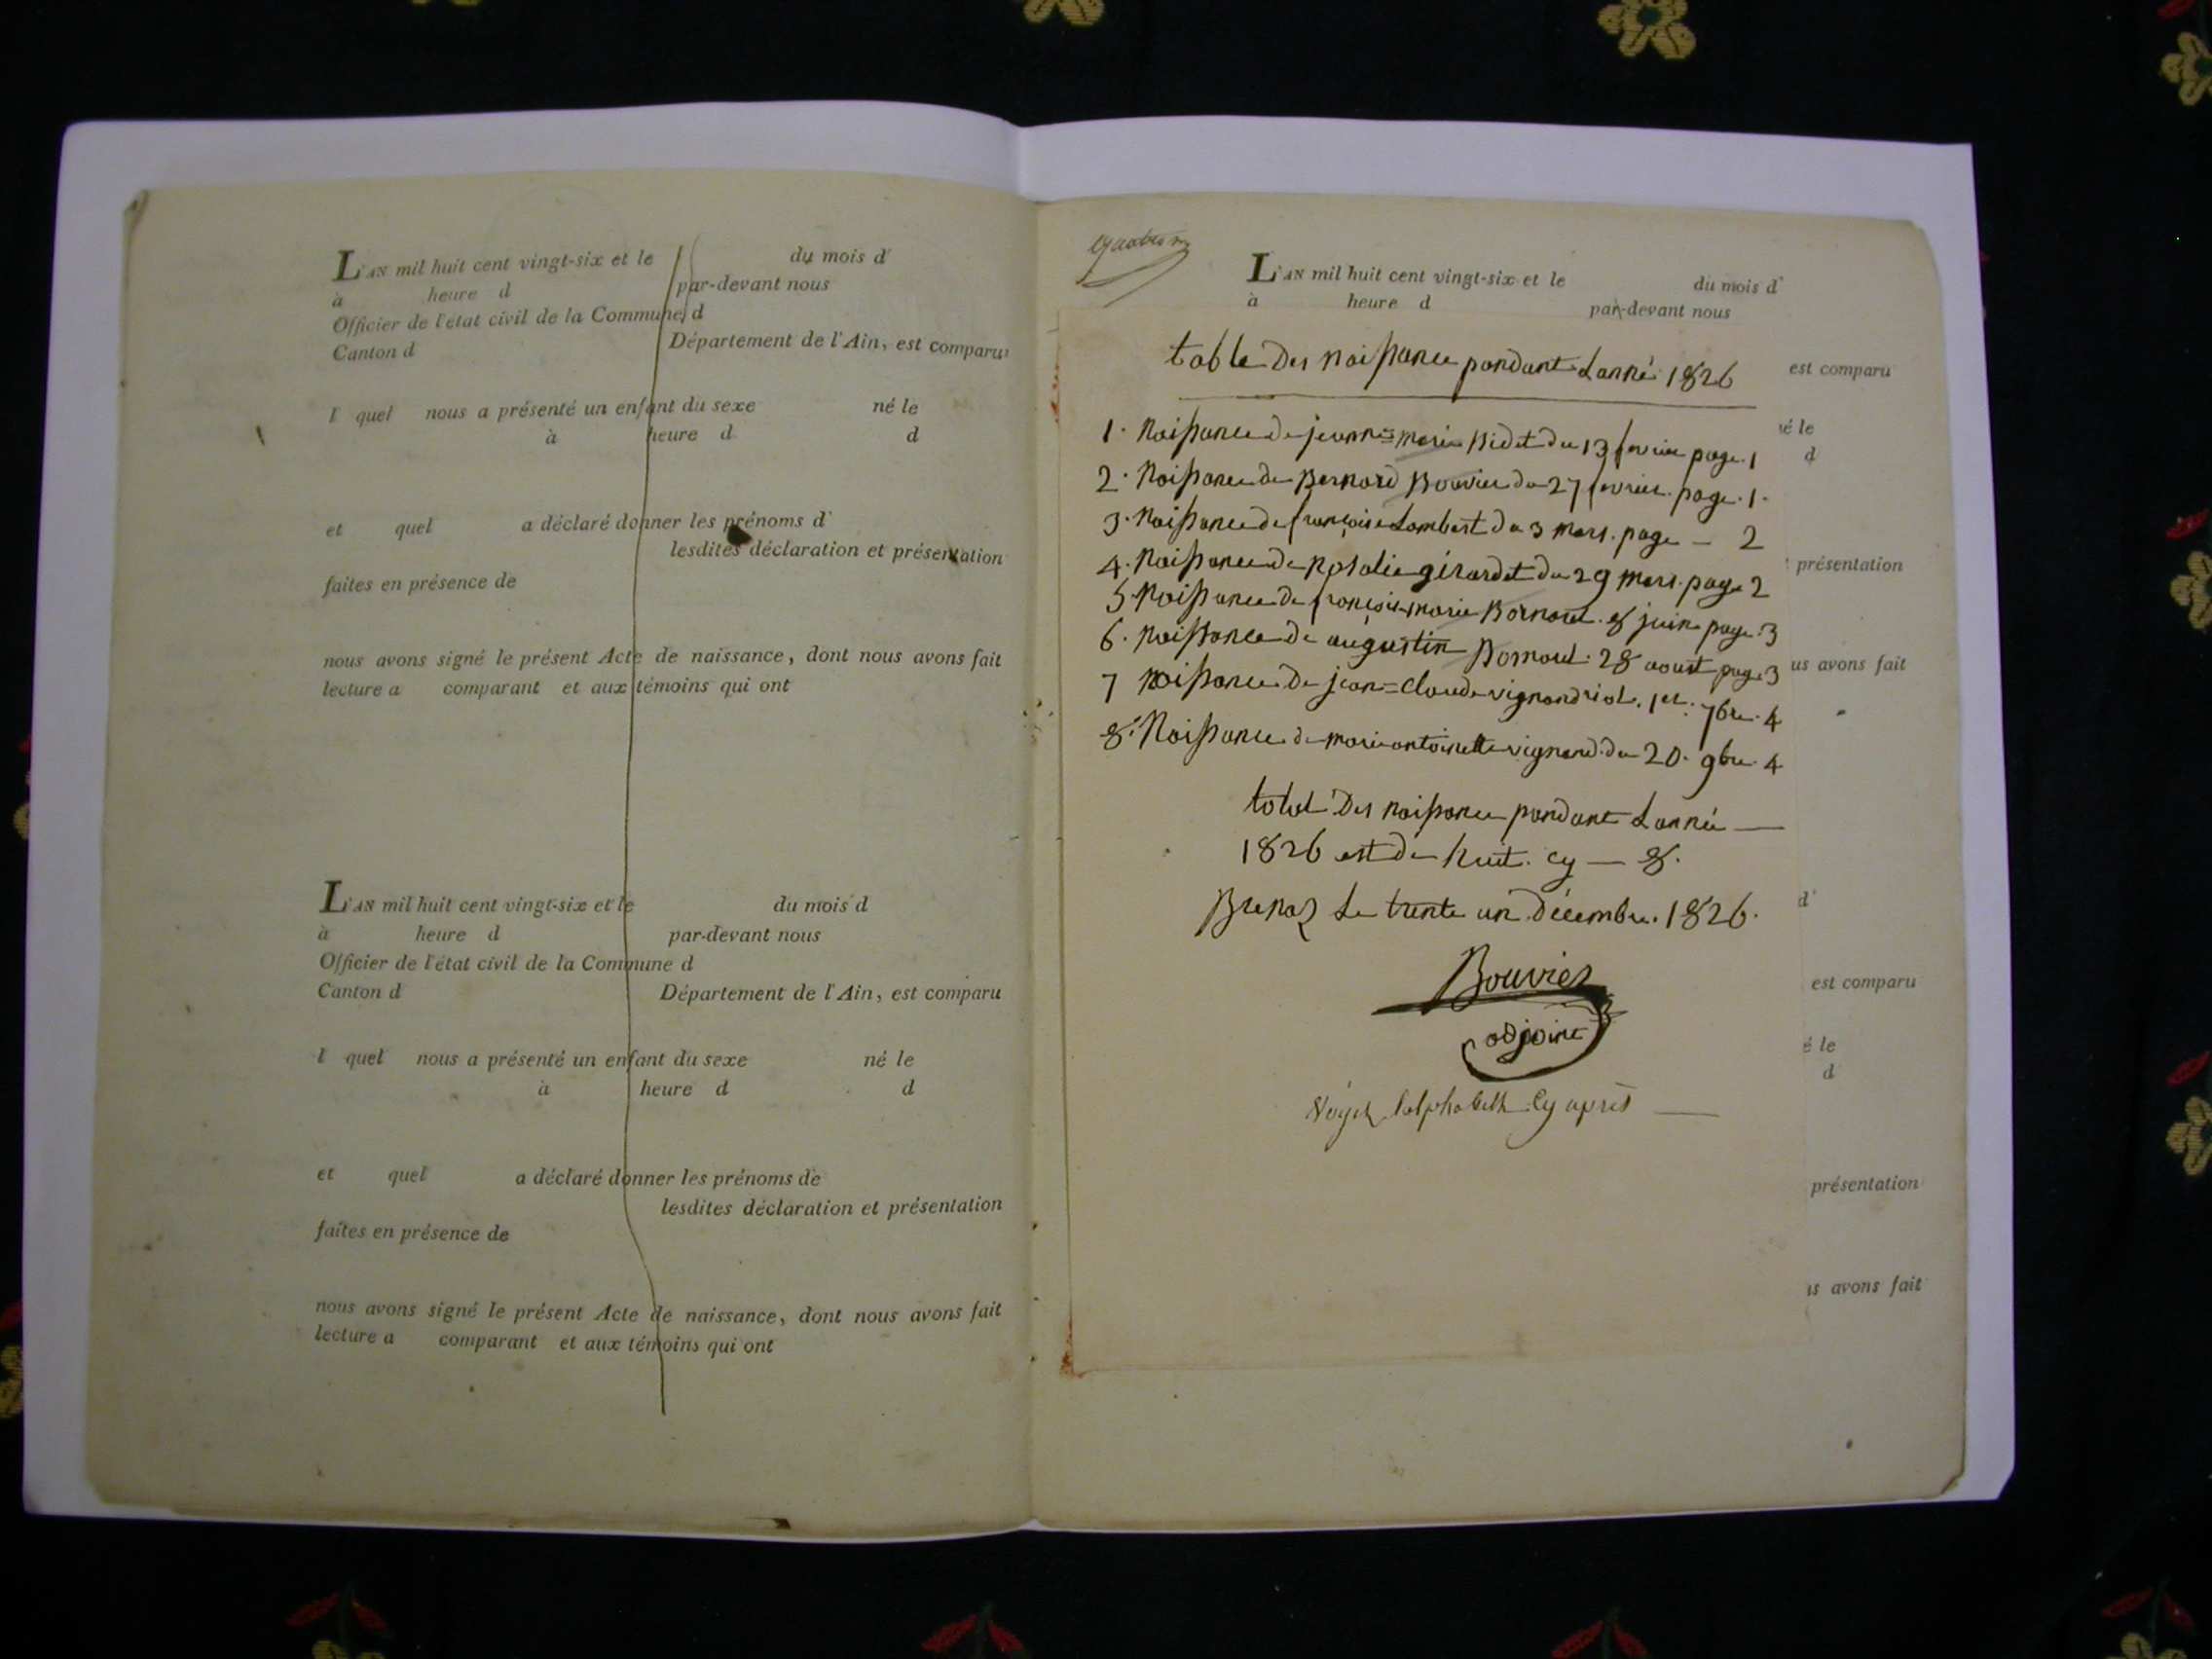 L'AN mil huit cent vingt-six et le du mois d'
à heure d par-devant nous
Officier de l'état civil de la Commune d
Canton d Département de l'Ain, est comparu
l quel nous a présenté un enfant du sexe né le
à heure d d
et quel a déclaré donner les prénoms d'
lesdites déclaration et présentation
faites en présence de
nous avons signé le présent Acte de naissance, dont nous avons fait
lecture a comparant et aux témoins qui ont
L'AN mil huit cent vingt-six et le du mois d
à heure d par-devant nous
Officier de l'état civil de la Commune d
Canton d Département de l'Ain, est comparu
l quel nous a présenté un enfant du sexe né le
à heure d d
et quel a déclaré donner les prénoms de
lesdites déclaration et présentation
faites en présence de
nous avons signé le présent Acte de naissance, dont nous avons fait
lecture a comparant et aux témoins qui ont
L'AN mil huit cent vingt-six et le du mois d'
à heure d par-devant nous
table Des naissance pendant Lanné 1826
est comparu
1. Naissance de jeanne=marie Bidet du 13 fevrier page 1
né le
d
2. Naissance de Bernard Bouvier du 27 fevrier page 1.
3. Naissance de françoise Lambert du 3 mars. page — 2
4. Naissance de Rosalie girardet du 29 mars. page 2
présentation
5. Naissance de françois marie 8 juin page 3
6. Naissance de augustin 28 aoust page 3
us avons fait
7 Naissance de jean=Claude 1er. 7bre. 4
8. Naissance de marie antoinette vignand du 20. 9bre. 4
total Des naissance pendant Lanné —
1826 est de huit. cy — 8.
Brenaz Le trente un décembre. 1826.
d'
Bouvier
est comparu
adjoint
é le
d
Voyez lalphabeth Cy après —
présentation
us avons fait